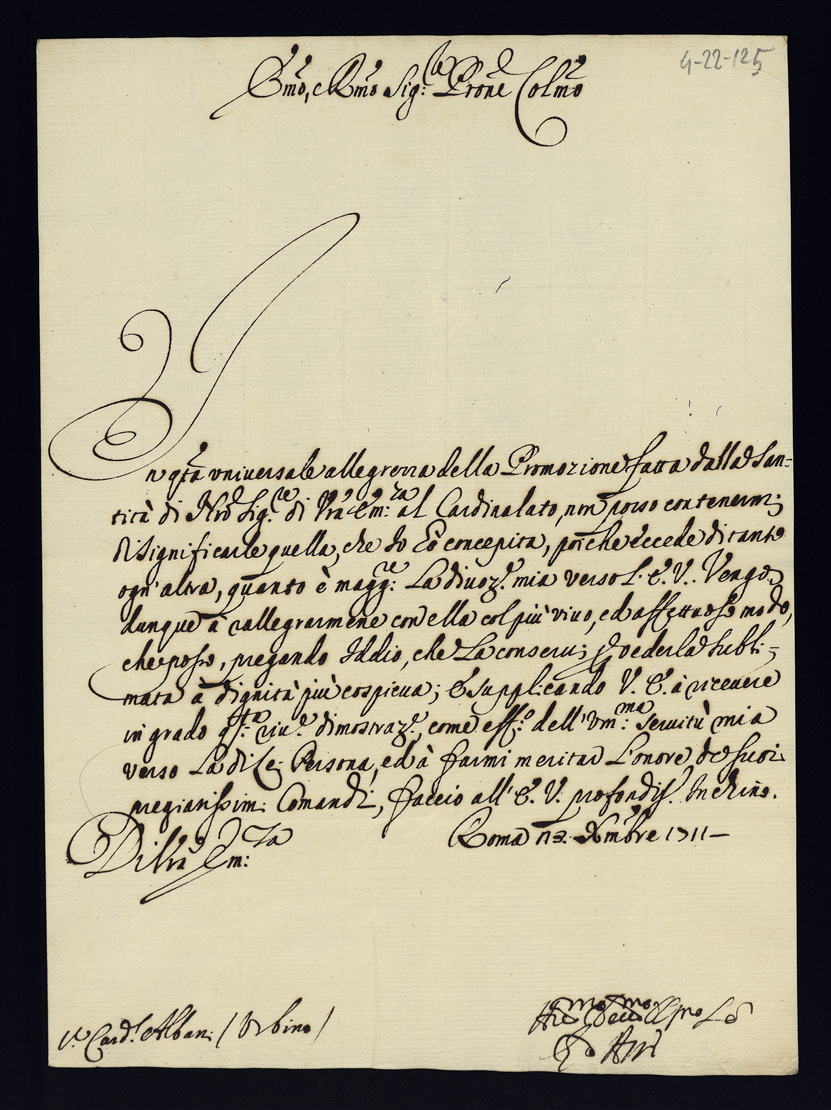 4-22-125
Em̃o, e Rm̃o Sig:re Prone Colm̃o
In q̃ta vniuersale allegrezza della Promozione fatta dalla San=
tità di Nrõ Sig:re di Vrã Em:za al Cardinalato, non posso contenermi
di significarle quella, che Io hò concepita, poiche eccede di tanto
ogn'altra, quanto è magg:re La diuoz:e mia verso L. E. V.. Vengo
dunque à rallegrarmene con ella col più viuo, ed affettuoso modo,
che posso, pregando Iddio, che La conserui p̲ vederla subli=
mata à dignità più cospicua; E supplicando V. E. à riceuere
in grado q̃sta riu:e dimostraz:e, come eff:o dell'Vm:ma Seruitù mia
verso La di Lei Persona, ed à farmi meritar L'onore de suoi
pregiatissimi Comandi, faccio all'E. V. profondis:o Inchino.
Di Vrã Em:za
Roma 12. Xm̃bre 1711-
S.r Card.l Albani (Vrbino)